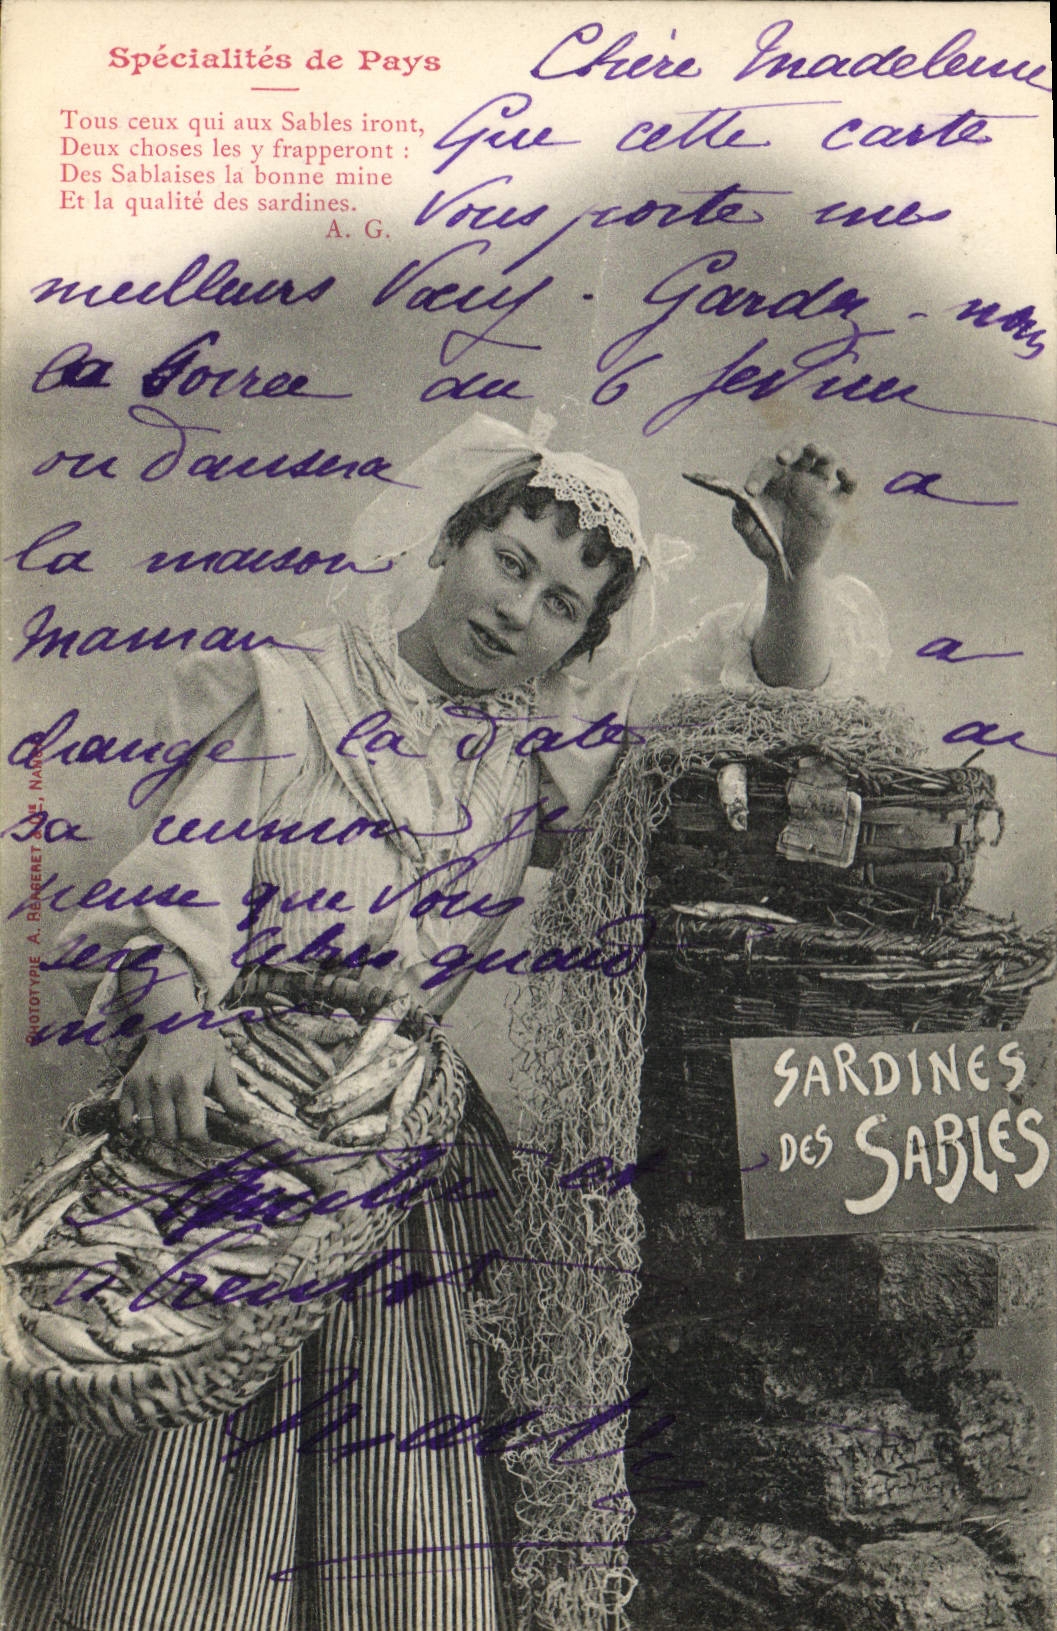 Spécialités de Pays
Tous ceux qui aux Sables iront,
Deux choses les y frapperont :
Des Sablaises la bonne mine
Et la qualité des sardines.
A. G.
Chère Madeleine
Que cette carte
Vous porte mes
meilleurs Vœux . Gardez - nous
la Soirée du 6 fevrier
on dansera a
la maison
Maman a
change la date de
sa reunion je
pense que Vous
serez libres quand
meme
Amelie et
a bientot
PHOTOTYPIE A. BERGERET & Cie, NANCY
SARDINES
DES SABLES